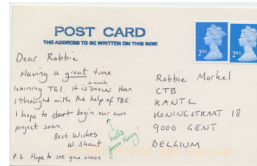 POST CARD
THE ADDRESS TO BE WRITTEN ON THIS SIDE
2ND
2ND
Dear Robbie
Having a great time
learning TEI. It is much easier than
I thought with the help of TBE
I hope to start begin our own
project soon.
Best Wishes
P.S. Hope to see you soon
hello from
Robbie Morkel
CTB
KANTL
KONINGSTRAAT 18
9000 GENT
BELGIUM